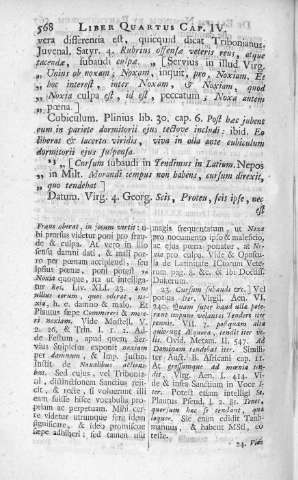 568 LIBER QUARTUS CAP. IV.
vera differentia est, quicquid dicat Tribonianus.
Juvenal. Satyr. 4. Rubrius offensæ veteris reus, atque
tacendæ, subaudi culpæ. [Servius in illud Virg.
„ Unius ob noxam; Noxam, inquit, pro, Noxiam. Et
„ hoc interest, inter Noxam & Noxiam, quod
„ Noxia culpa est, id est, peccatum, Noxa autem
„ pœna.]
Cubiculum. Plinius lib. 30. cap. 6. Post hæc jubent
eum in pariete dormitorii ejus testove includi: ibid. Eo
liberos & lacerto viridis, vivo in olla ante cubiculum
dormitorii ejus suspensa.
23 „ [Cursum subaudi in Tendimus in Latium. Nepos
„ in Milt. Morandi tempus non habens, cursum direxit,
„ quo tendebat]
Datum. Virg. 4. Georg. Scis, Proteu, scis ipse, nec
est
Fraus aberat, in ipsum vertit: u-
bi prorsus videtur poni pro frau-
de & culpa. At vero in illo
sensu damni dati, & mali por-
ro per pœnam accipiendi, seu
ipsius pœnæ, poni potest
Noxia quoque, ita ut intelliga-
tur Res. Liv. XLI. 23.
nullius rerum, quas oderat,
xia, h. e. damno & malo. Et
Plautus sæpe Commerere & mere-
ri noxiam. Vide Mostell. V.
2. 26, & Trin. I. 1. 2. Ad-
de Festum, apud quem Ser-
vius Sulpitius exponit noxiam
per damnum, & Imp. Justin.
Instit. de Noxalibus actioni-
bus. Sed ejus, vel Tribonia-
ni, dilucidationem Sanctius reji-
cit, & recte, si voluerunt illi
eam fuisse hisce vocabulis pro-
priam ac perpetuam. Mihi cer-
te videtur utrumque fere idem
significare, & ideo promiscue
sæpe adhiberi: sed tamen usu
magis frequentatum, ut Noxa
pro nocumento ipso & maleficio,
ac ejus pœna ponatur, at No-
xia pro culpa. Vide & Opuscu-
la de Latinitate JCorum Vete-
rum pag. & ibi Doctiss.
Dukerum.
23. Cursum subaudi &c.] Vel
potius Iter. Virgil. Aen. VI.
240. Quam super haud ullæ pote-
rant impune volantes Tendere iter
pennis. VII. 7. postquam alta
quierunt Æquora, tendit iter ve-
lis. Ovid. Metam. II. 547. Ad
Dominum tendebat iter. Simili-
ter Auct. B. Africani cap.
At gressumque ad mœnia ten-
dit. Virg. Aen. I. 414. Vi-
de & infra Sanctium in Voce I-
ter. Potest etiam intelligi Se.
Plautus Pseud.
quorsum hac se tendant, quæ
loquor. Sic enim edidit Taub-
mannus, & habent MSti, eo
teste.
24. Plau